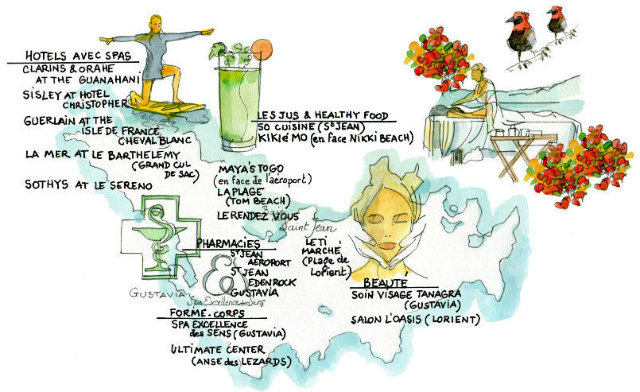 HOTELS AVEC SPAS
CLARINS & ORAHE
AT THE GUANAHANI
SISLEY AT HOTEL
CHRISTOPHER
GUERLAIN AT THE
ISLE DE FRANCE
CHEVAL BLANC
LA MER AT LE BARTHELEMY
(GRAND CUL
DE SAC)
SOTHYS AT LE SERENO
LES JUS & HEALTHY FOOD
SO CUISINE (ST JEAN)
KIKI é MO (en face NIKKI BEACH)
MAYA'S TO GO
(en face de l'aeroport)
LA PLAGE
(TOM BEACH)
LE RENDEZ VOUS
Saint Jean
LE TI
MARCHÉ
(Plage de
Lorient)
PHARMACIES
ST JEAN
AEROPORT
ST JEAN
EDENROCK
GUSTAVIA
&
GUSTAVIA
Spa Excellence des Sens
FORME-CORPS
SPA EXCELLENCE
des SENS (GUSTAVIA)
ULTIMATE CENTER
(ANSE des LEZARDS)
BEAUTÉ
SOIN VISAGE TANAGRA
(GUSTAVIA)
SALON L'OASIS (LORIENT)